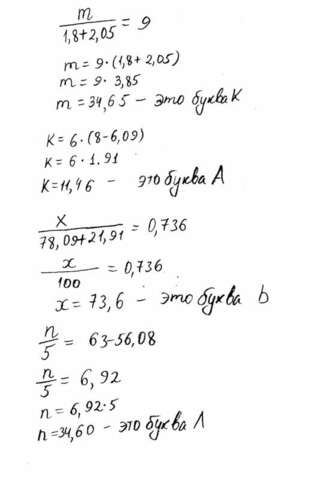 m/(1,8+2,05) = 9
m = 9·(1,8+2,05)
m = 9· 3,85
m = 34,65 – это буква К
K = 6·(8-6,09)
K = 6·1.91
K = 11,46 – это буква А
x/(78,09+21,91) = 0,736
x/100 = 0,736
x = 73,6 – это буква b
n/5 = 63-56,08
n/5 = 6,92
n = 6,92·5
n = 34,60 – это буква Л